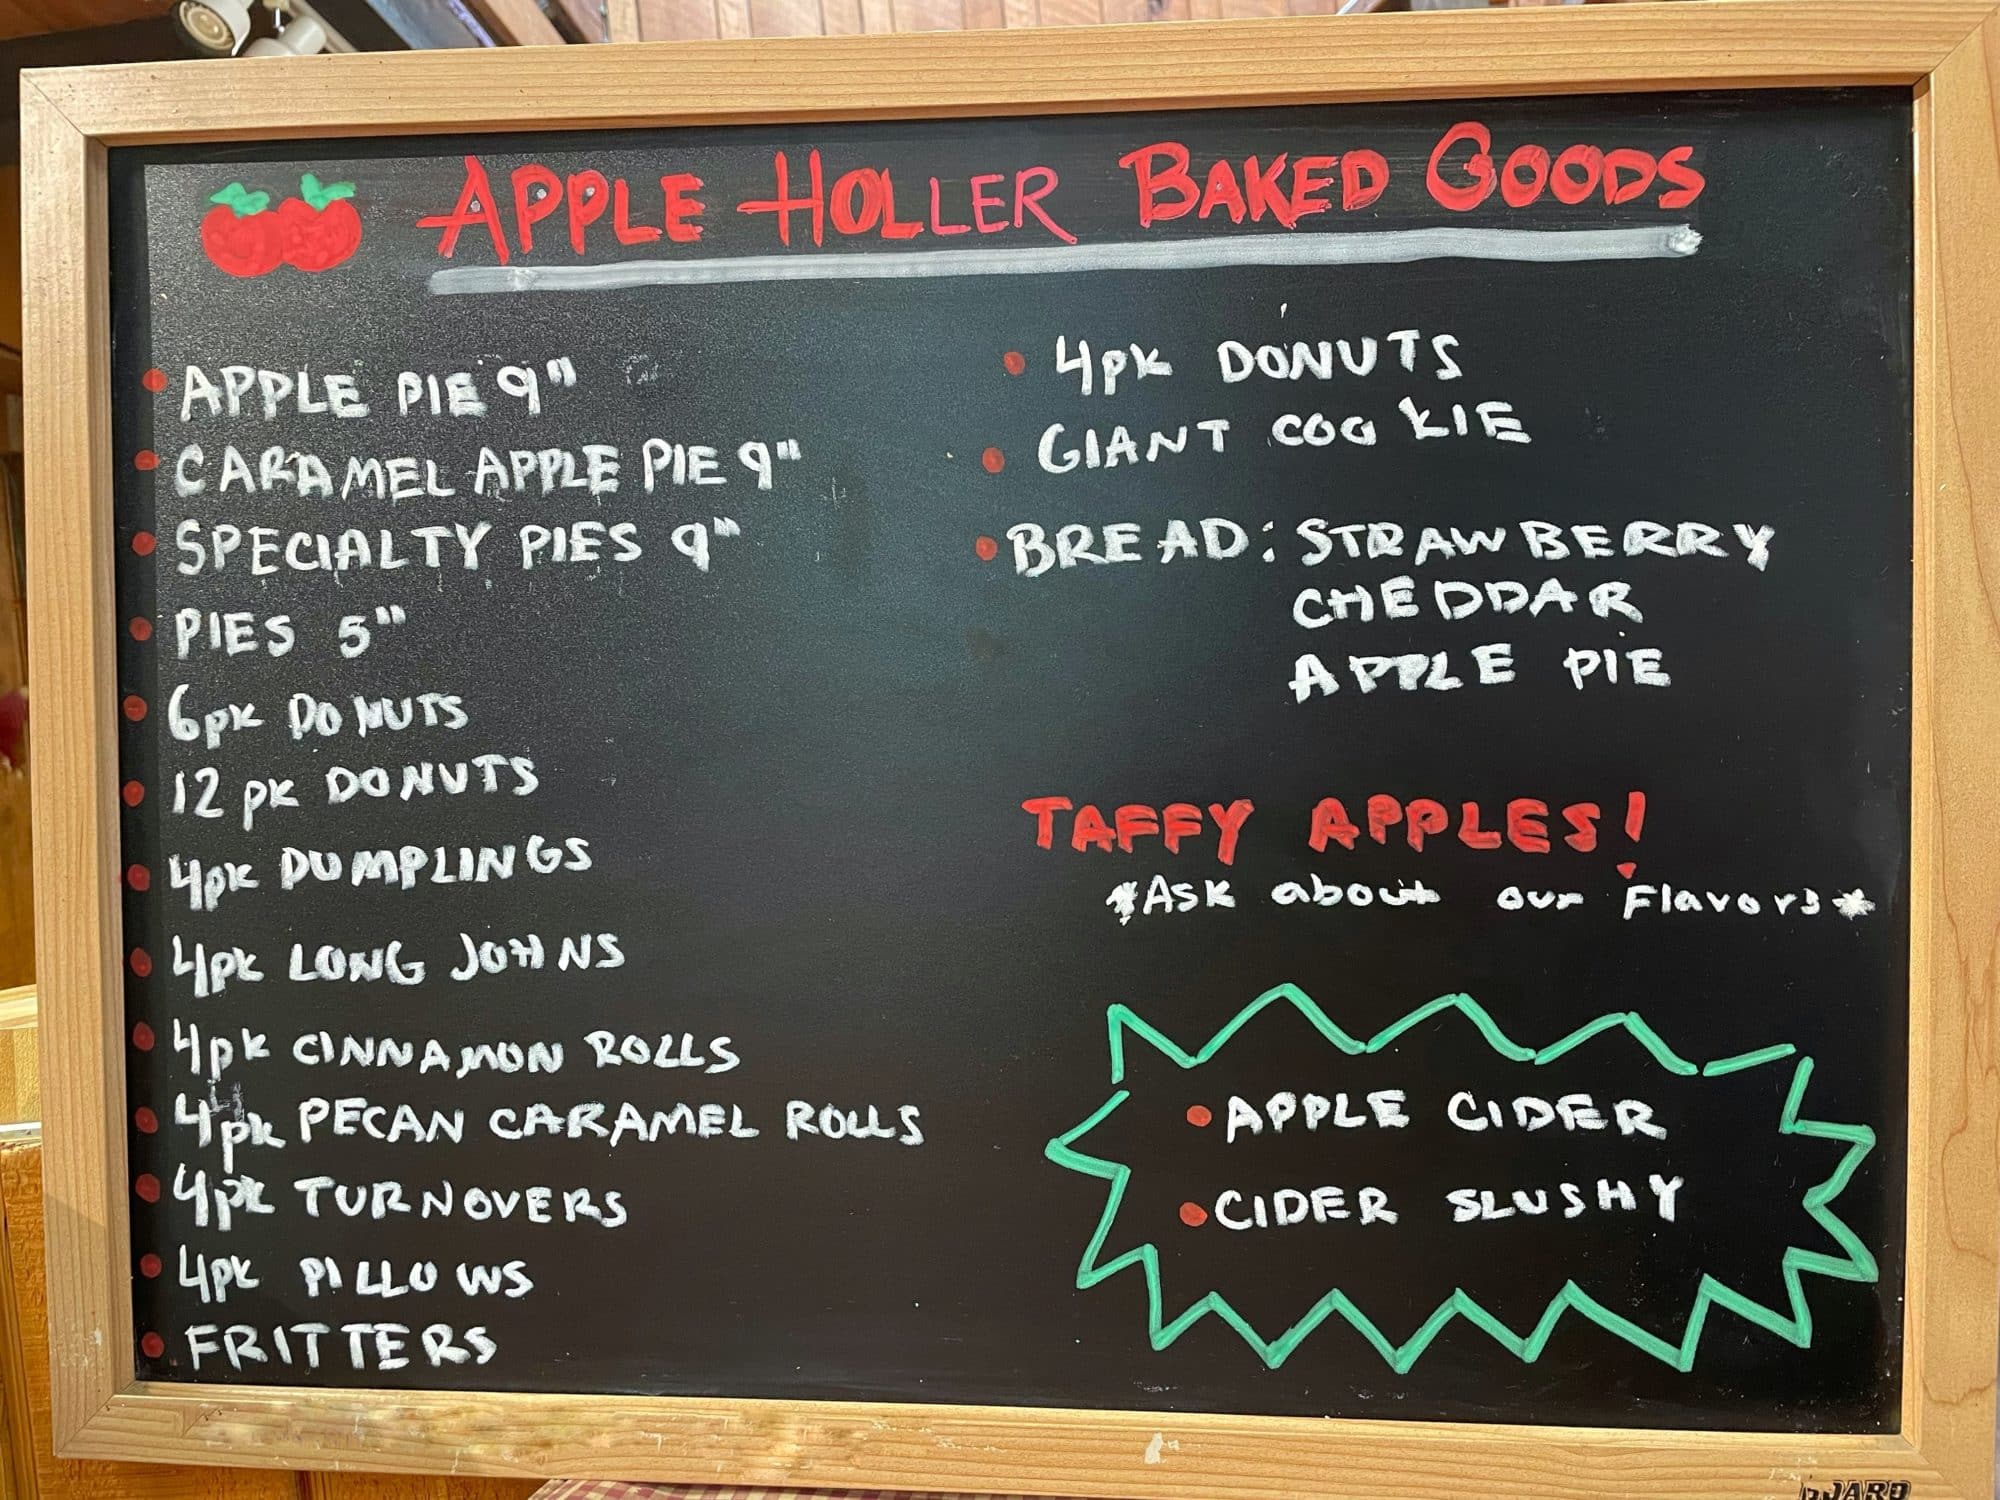 APPLE HOLLER BAKED GOODS
APPLE PIE 9"
CARAMEL APPLE PIE 9"
SPECIALTY PIES 9"
PIES 5"
6pk DONUTS
12 pk DONUTS
4pk DUMPLINGS
4pk LONG JOHNS
4pk CINNAMON ROLLS
4pk PECAN CARAMEL ROLLS
4pk TURNOVERS
4pk PILLOWS
FRITTERS
4pk DONUTS
GIANT COOKIE
BREAD: STRAWBERRY
CHEDDAR
APPLE PIE
TAFFY APPLES!
*Ask about our Flavors*
APPLE CIDER
CIDER SLUSHY